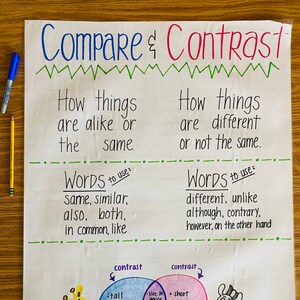 Compare & Contrast
How things
are alike or
the same.
How things
are different
or not the same.
Words to use:
same, similar,
also, both,
in common, like
Words to use:
different, unlike
although, contrary,
however, on the other hand
contrast contrast
• tall
• short